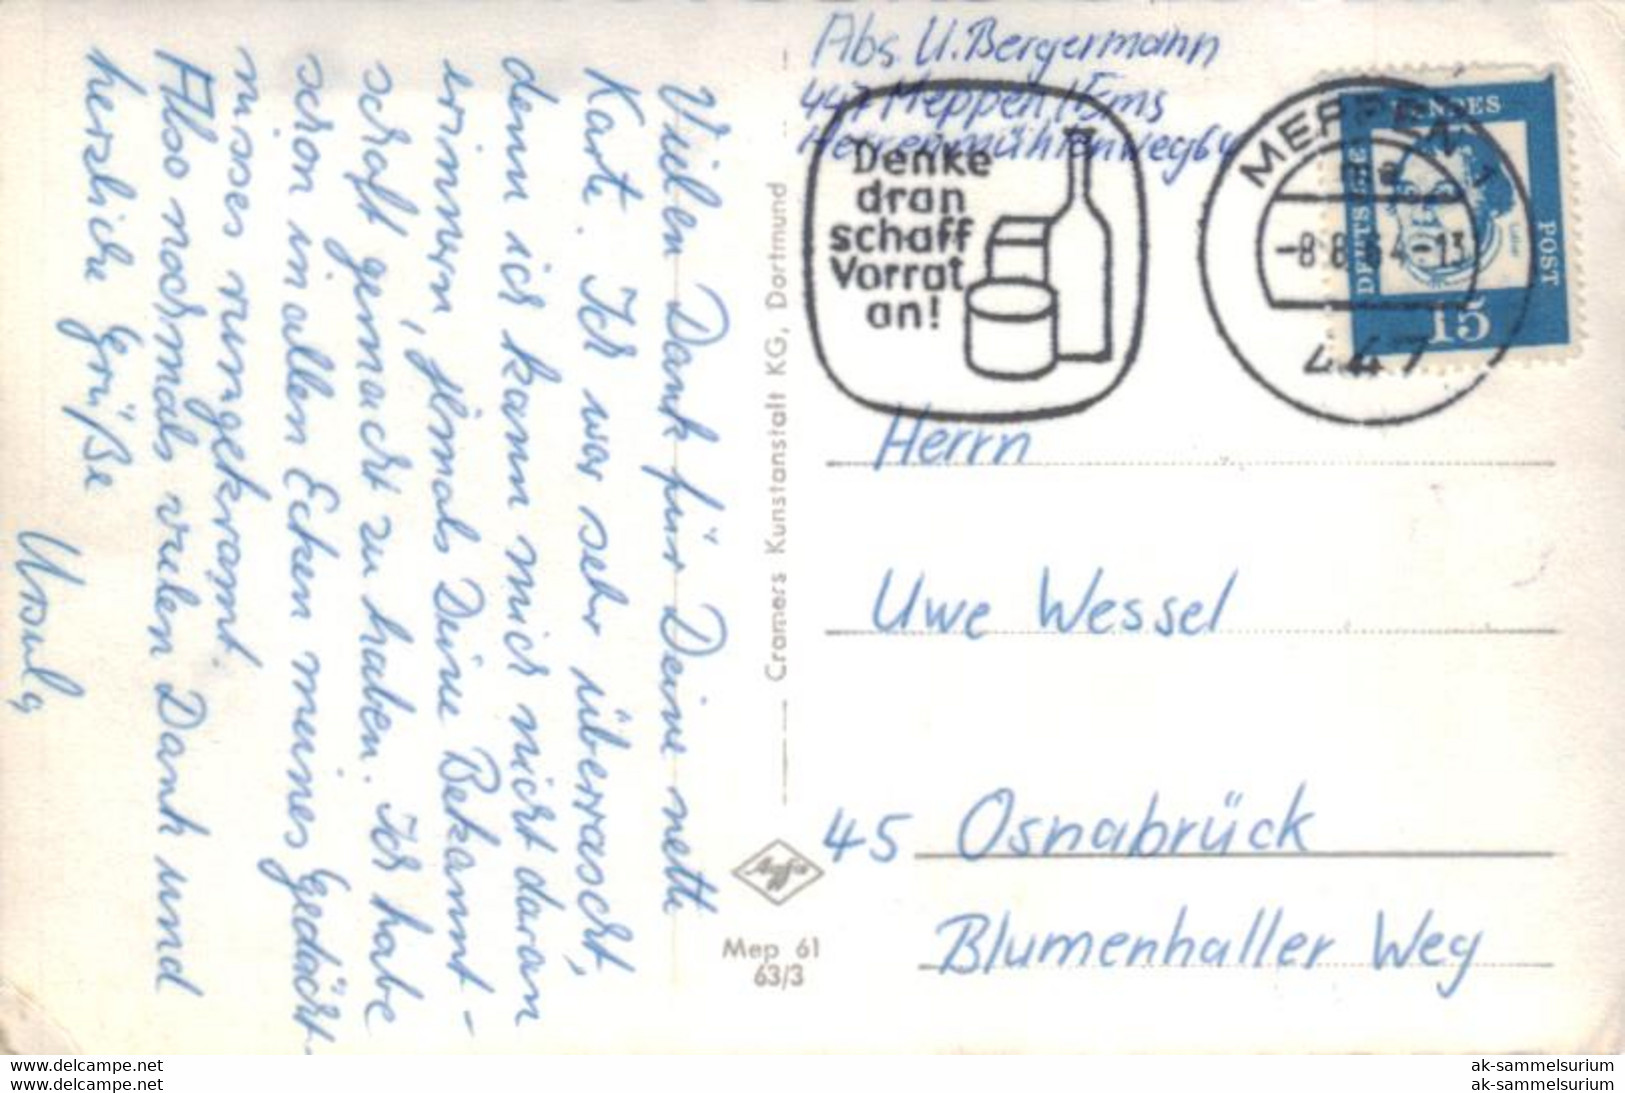 Abs. U. Bergermann
447 Meppen / Ems
Herrenmühlenweg 64
Denke
dran
schaff
Vorrat
an!
MEPPEN 1
ma
-8.8.64-13
447
DEUTSCHE
BUNDES
POST
Luther
15
Herrn
Uwe Wessel
45 Osnabrück
Blumenhaller Weg
Cramers Kunstanstalt KG, Dortmund
Agfa
Mep 61
63/3
Vielen Dank für Deine nette
Karte. Ich war sehr überrascht,
denn ich kann mich nicht daran
erinnern, jemals Deine Bekannt-
schaft gemacht zu haben. Ich habe
schon in allen Ecken meines Gedächt-
nisses rumgekramt.
Also nochmals vielen Dank und
herzliche Grüße
Ursula
www.delcampe.net
www.delcampe.net
ak-sammelsurium
ak-sammelsurium